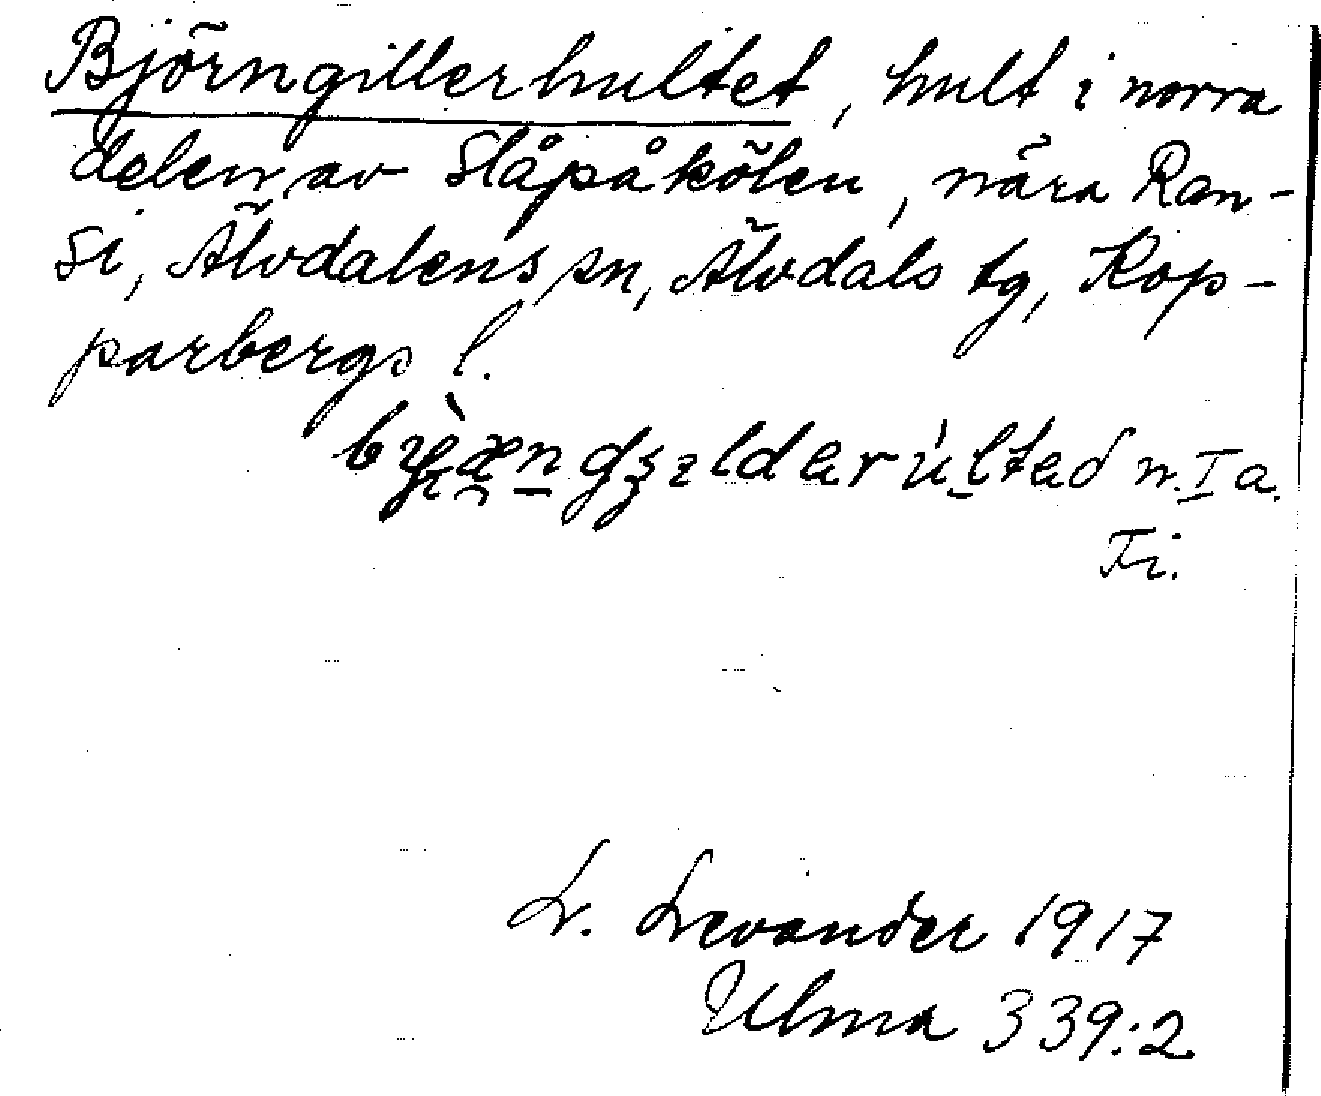 Björngillerhultet, hult i norra
delen av Slåpåkölen, nära Ran-
si, Älvdalens sn, Älvdals tg, Kop-
parbergs l.
n. I a.
Ti.
L. Levander 1917
Ulma 339:2